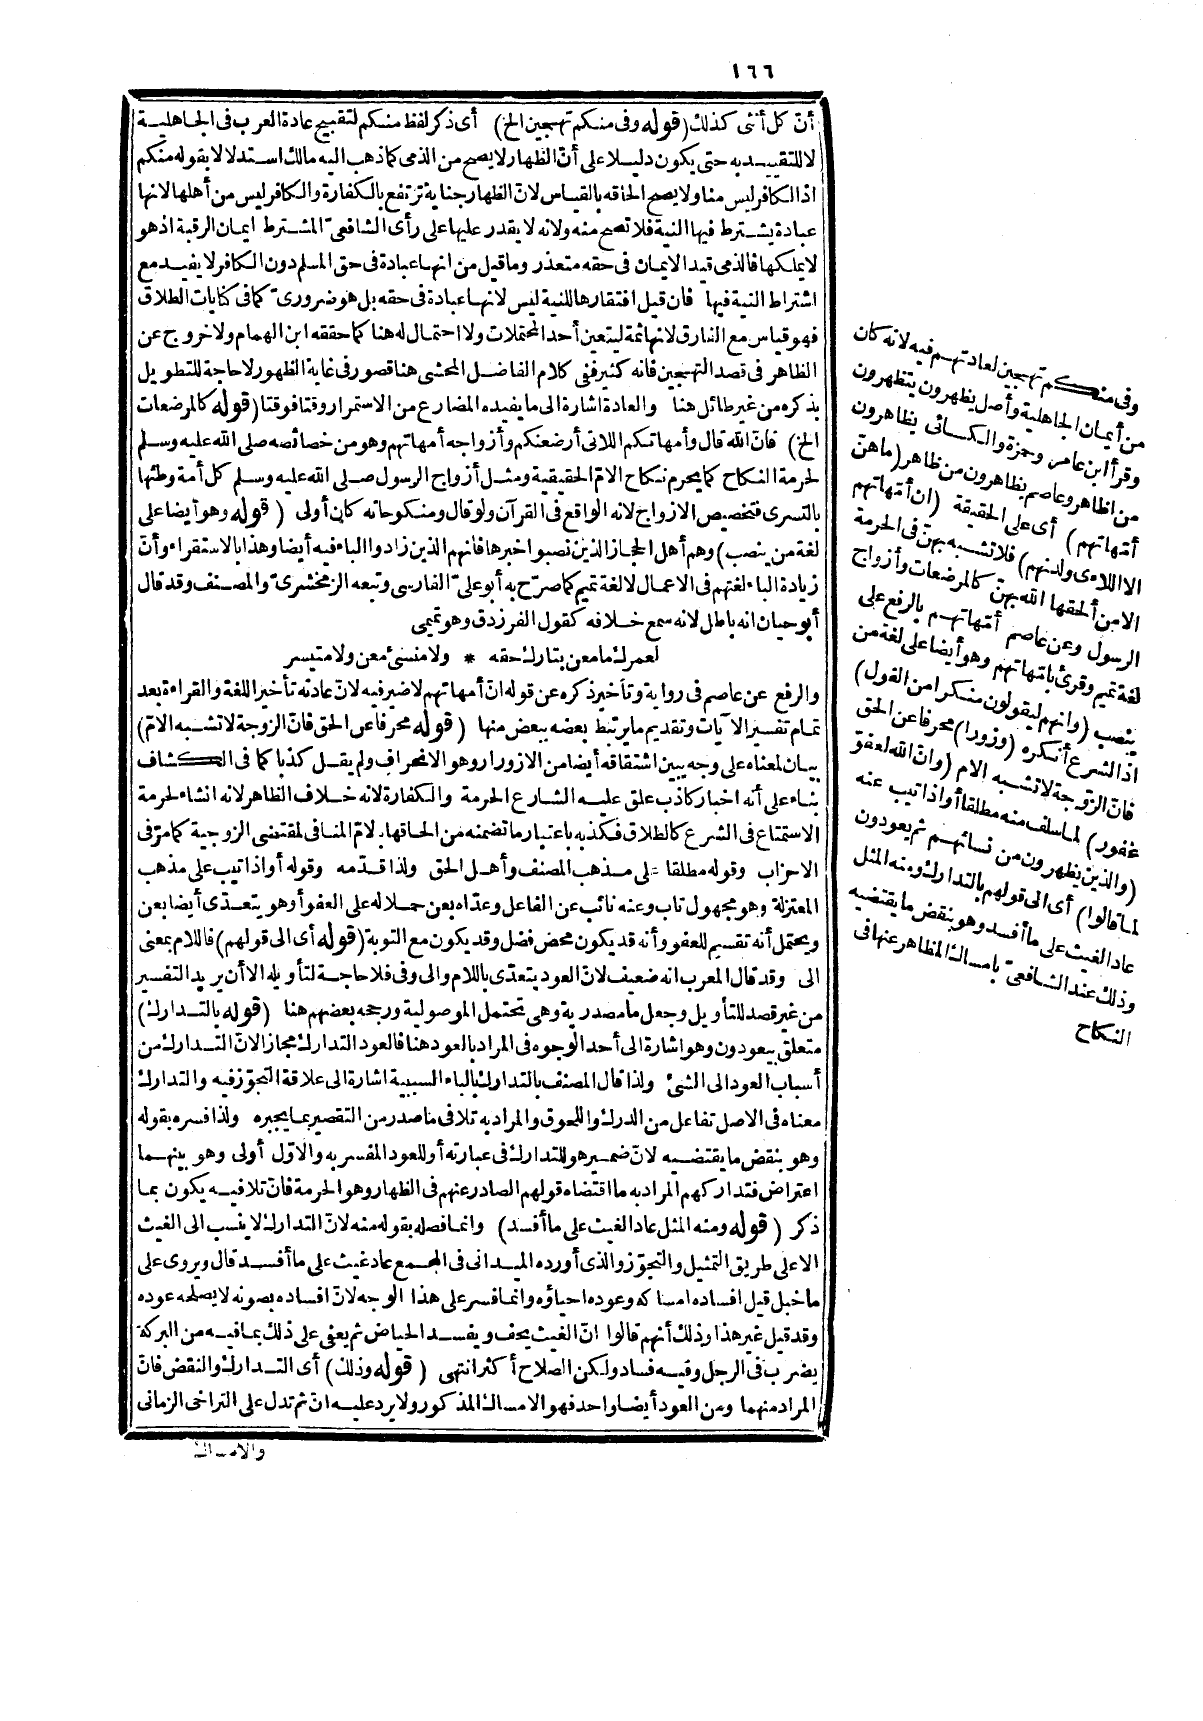 ١٦٦
أنّ كل أنثى كذلك (قوله وفى منكم تهجين الخ) أى ذكر لفظ منكم لتقبيح عادة العرب فى الجاهلية
لا للتقييد به حتى يكون دليلا على أنّ الظهار لا يصح من الذمى كما ذهب اليه مالك استدلالا بقوله منكم
اذ الكافر ليس منا ولا يصح الحاقه بالقياس لانّ الظهار جناية ترتفع بالكفارة والكافر ليس من أهلها لانها
عبادة يشترط فيها النية فلا تصح منه ولانه لا يقدر عليها على رأى الشافعىّ المشترط ايمان الرقبة اذ هو
لا يملكها فالذمى قيد الايمان فى حقه متعذر وما قيل من انها عبادة فى حق المسلم دون الكافر لا يفيد مع
اشتراط النية فيها فان قيل افتقارها للنية ليس لانها عبادة فى حقه بل هو ضرورىّ كما فى كنايات الطلاق
فهو قياس مع الفارق لانها ثمة ليتعين أحد المحتملات ولا احتمال له هنا كما حققه ابن الهمام ولا خروج عن
الظاهر فى قصد التهجين فانه كثير ففى كلام الفاضل المحشى هنا قصور فى غاية الظهور لا حاجة للتطويل
بذكره من غير طائل هنا والعادة اشارة الى ما يفيده المضارع من الاستمرار وقتا فوقتا (قوله كالمرضعات
الخ) فانّ الله قال وأمهاتكم اللاتى أرضعنكم وأزواجه أمهاتهم وهو من خصائصه صلى الله عليه وسلم
لحرمة النكاح كما يحرم نكاح الامّ الحقيقية ومثل أزواج الرسول صلى الله عليه وسلم كل أمة وطئها
بالتسرى فتخصيص الازواج لانه الواقع فى القرآن ولو قال ومنكوحاته كان أولى (قوله وهو أيضا على
لغة من ينصب) وهم أهل الحجاز الذين نصبوا خبرها فانهم الذين زادوا الباء فيه أيضا وهذا بالاستقراء وأنّ
زيادة الباء لغتهم فى الاعمال لا لغة تميم كما صرّح به أبو علىّ الفارسى وتبعه الزمخشرىّ والمصنف وقد قال
أبو حيان انه باطل لانه سمع خلافه كقول الفرزدق وهو تميمى
لعمرك ما معن بتارك حقه * ولا منسئ معن ولا متيسر
والرفع عن عاصم فى رواية وتأخير ذكره عن قوله انّ أمهاتهم لا ضير فيه لانّ عادته تأخير اللغة والقراءة بعد
تمام تفسير الآيات وتقديم ما يرتبط بعضه ببعض منها (قوله محرفا عن الحق فانّ الزوجة لا تشبه الامّ)
بيان لمعناه على وجه يبين اشتقاقه أيضا من الازورار وهو الانحراف ولم يقل كذبا كما فى الكشاف
بناء على أنه اخبار كاذب علق عليه الشارع الحرمة والكفارة لانه خلاف الظاهر لانه انشاء لحرمة
الاستمتاع فى الشرع كالطلاق فكذبه باعتبار ما تضمنه من الحاقها بالامّ المنافى لمقتضى الزوجية كما مرّ فى
الاحزاب وقوله مطلقا على مذهب المصنف وأهل الحق ولذا قدّمه وقوله أو اذا تيب على مذهب
المعتزلة وهو مجهول تاب وعنه نائب عن الفاعل وعدّاه بعن حملا له على العفو أو هو يتعدّى أيضا بعن
ويحتمل أنه تقسيم للعفو وأنه قد يكون محض فضل وقد يكون مع التوبة (قوله أى الى قولهم) فاللام بمعنى
الى وقد قال المعرب انه ضعيف لانّ العود يتعدّى باللام والى وفى فلا حاجة لتأويله الا أن يريد التفسير
من غير قصد للتأويل وجعل ما مصدرية وهى تحتمل الموصولية ورجحه بعضهم هنا (قوله بالتدارك)
متعلق بيعودون وهو اشارة الى أحد الوجوه فى المراد بالعود هنا فالعود التدارك مجازا لانّ التدارك من
أسباب العود الى الشئ ولذا قال المصنف بالتدارك بالباء السببية اشارة الى علاقة التجوّز فيه والتدارك
معناه فى الاصل تفاعل من الدرك واللحوق والمراد به تلافى ما صدر من التقصير بما يجبره ولذا فسره بقوله
وهو بنقض ما يقتضيه لانّ ضمير هو للتدارك فى عبارته أو للعود المفسر به والاوّل أولى وهو بينهما
اعتراض فتداركهم المراد به ما اقتضاه قولهم الصادر عنهم فى الظهار وهو الحرمة فانّ تلافيه يكون بما
ذكر (قوله ومنه المثل عاد الغيث على ما أفسد) وانما فصله بقوله منه لانّ التدارك لا ينسب الى الغيث
الا على طريق التمثيل والتجوّز والذى أورده الميدانى فى المجمع عاد غيث على ما أفسد قال ويروى على
ما خبل قيل افساده امساكه وعوده احياؤه وانما فسر على هذا الوجه لانّ افساده بصوبه لا يصلحه عوده
وقد قيل غير هذا وذلك أنهم قالوا انّ الغيث يحف ويفسد الحياض ثم يعفى على ذلك بما فيه من البركة
يضرب فى الرجل وفيه فساد ولكن الصلاح أكثر انتهى (قوله وذلك) أى التدارك والنقض فانّ
المراد منهما ومن العود أيضا واحد فهو الامساك المذكور ولا يرد عليه انّ ثم تدل على التراخى الزمانى
والامساك
وفى منكم تهجين لعادتهم فيه لانه كان
من أيمان الجاهلية وأصل يظهرون يتظهرون
وقرأ ابن عامر وحمزة والكسائى يظاهرون
من اظاهر وعاصم يظاهرون من ظاهر (ما هنّ
أمّهاتهم) أى على الحقيقة (ان أمّهاتهم
الا اللاءى ولدنهم) فلا تشبه بهنّ فى الحرمة
الا من ألحقها الله بهنّ كالمرضعات وأزواج
الرسول وعن عاصم أمّهاتهم بالرفع على
لغة تميم وقرئ بأمّهاتهم وهو أيضا على لغة من
ينصب (وانهم ليقولون منكرا من القول)
اذ الشرع أنكره (وزورا) محرفا عن الحق
فانّ الزوجة لا تشبه الام (وانّ الله لعفوّ
غفور) لما سلف منه مطلقا أو اذا تيب عنه
(والذين يظهرون من نسائهم ثم يعودون
لما قالوا) أى الى قولهم بالتدارك ومنه المثل
عاد الغيث على ما أفسد وهو بنقض ما يقتضيه
وذلك عند الشافعىّ بامساك المظاهر عنها فى
النكاح